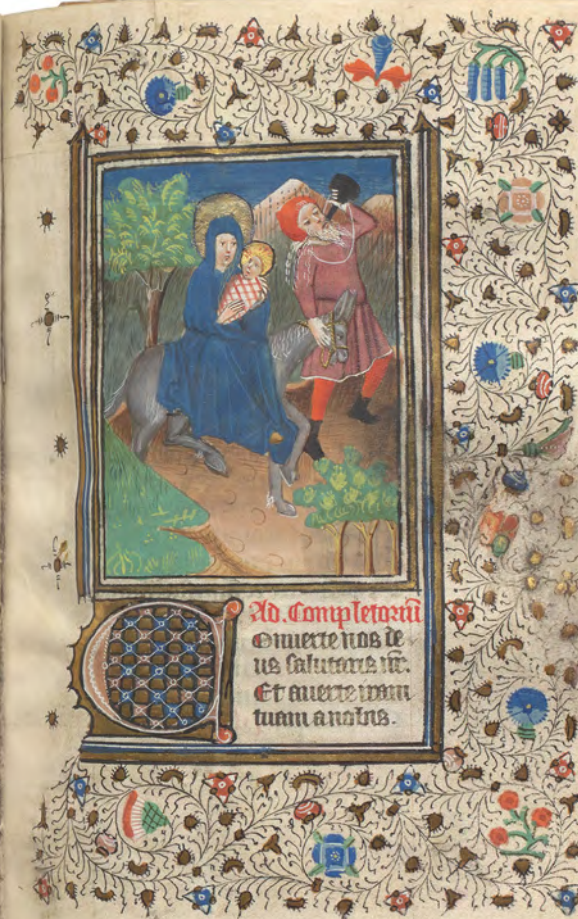 Ad. Completoriū
Conuerte nos de
us salutaris nr̄.
Et auerte iram
tuam a nobis.